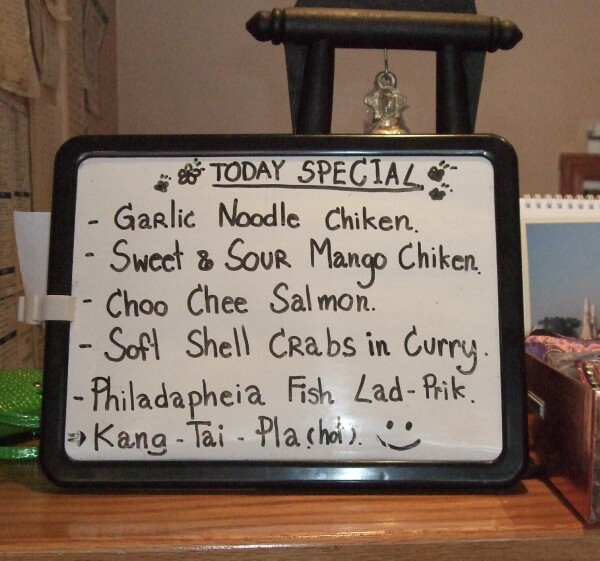 TODAY SPECIAL
- Garlic Noodle Chiken.
- Sweet & Sour Mango Chiken.
- Choo Chee Salmon.
- Soft Shell Crabs in Curry.
- Philadapheia Fish Lad-Prik.
Kang-Tai-Pla (hoi).